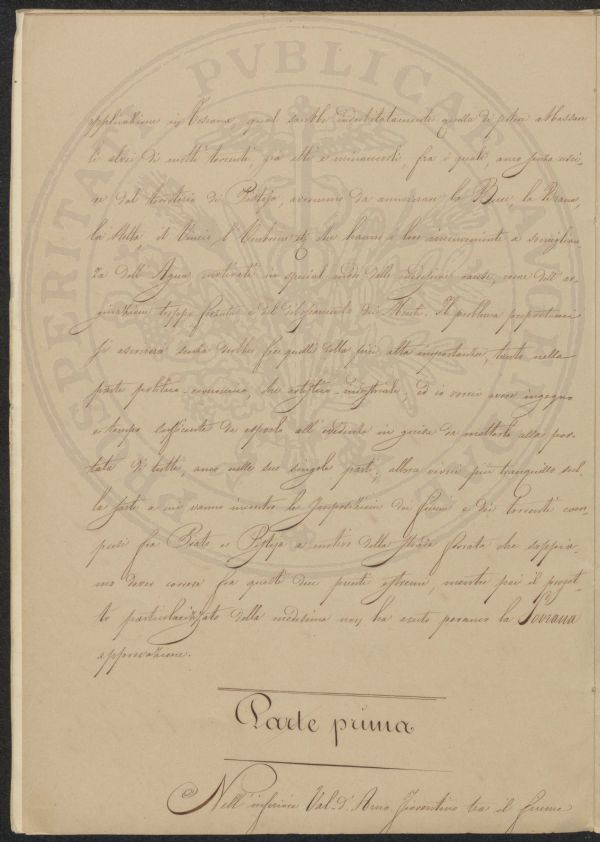 applicazione in Toscana, qual sarebbe indubitatamente quella di potere abbassare
li alvei di molti torrenti già alti e minacciosi, fra i quali, anco senza usci-
re dal territorio di Pistoja, avremmo da annoverare la Bure, la
la Stella il Vincio, l'Ombrone &c che hanno i loro a somiglian-
za dell' in special modo delle medesime cause, come dell' ar-
ginazione troppo e del dei Monti. Il problema propostomi
si ascriverà senza dubbio fra quelli della più alta importanza, tanto nella
parte politico-economica, che artistico-industriale, ed io vorrei avere ingegno
e tempo sufficiente da esporlo all' evidenza in guisa da metterlo alla por-
tata di tutti, anco nelle sue singole parti; allora vivrei più tranquillo sul-
la sorte a cui vanno incontro le Popolazioni dei fiumi e dei Torrenti com-
presi fra Prato e Pistoja a motivo della Strada ferrata che sappia-
mo dover correre fra questi due punti estremi, mentre poi il proget-
to particolarizzato della medesima non ha avuto peranco la Sovrana
approvazione.
Parte prima
Nell' inferiore Val-d'Arno Fiorentino tra il fiume
PVBLICAE